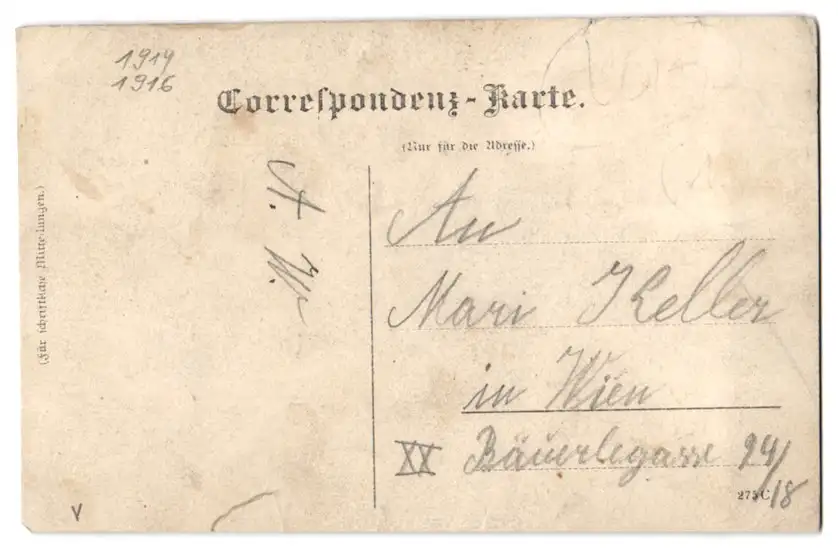 1914
1916
Correspondenz-Karte.
(Nur für die Adresse.)
(Für schriftliche Mitteilungen.)
A. W.
An
Mari Keller
in Wien
XX Bäuerlegasse 24/18
275C